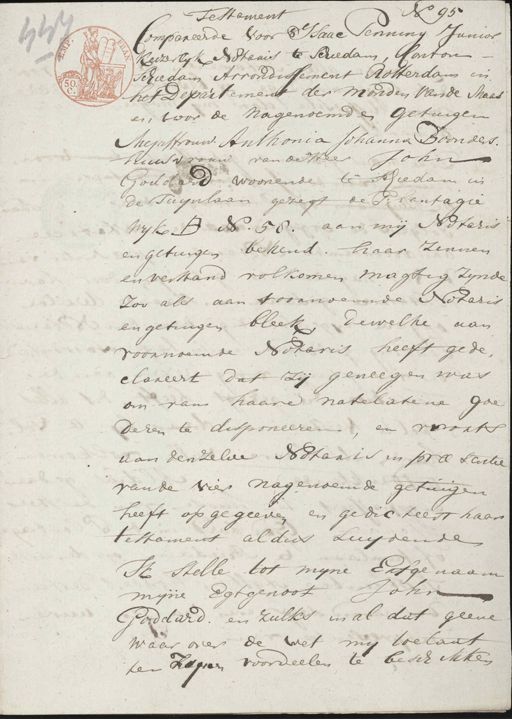 Testament No 95
447
EMP. FRAN.
50 C.
Compareerde voor Isaac Penning Junior
Keizerlyk Notaris te Schiedam, Canton
Schiedam Arrondissement Rotterdam in
het Departement der Monden van de Maas
en voor de Nagenoemden getuigen
Mejuffrouw Anthonia Johanna Zoonders.
Huisvrouw van de Heer John
Goddard woonende te Schiedam in
de Tuynlaan gezegt de Plantagie
Wyk D No. 58. aan my Notaris
en getuigen bekend. haar Zinnen
en verstand volkomen magtig Zynde
Zoo als aan voornoemde Notaris
en getuigen bleek, Dewelke aan
voornoemde Notaris heeft gede,
clareert dat Zy geneegen was
om van haare natelatene goe
deren te disponeeren, en voorts
aan denzelve Notaris in præsentie
van de vier nagenoemde getuigen
heeft opgegeeven en gedicteest haar
testament aldus Luydende
Ik stelle tot myne Erfgenaam
myne Egtgenoot John
Goddard. en zulks in al dat geene
waar over de wet my toelaat
ten Zynen voordeelen te beschikken